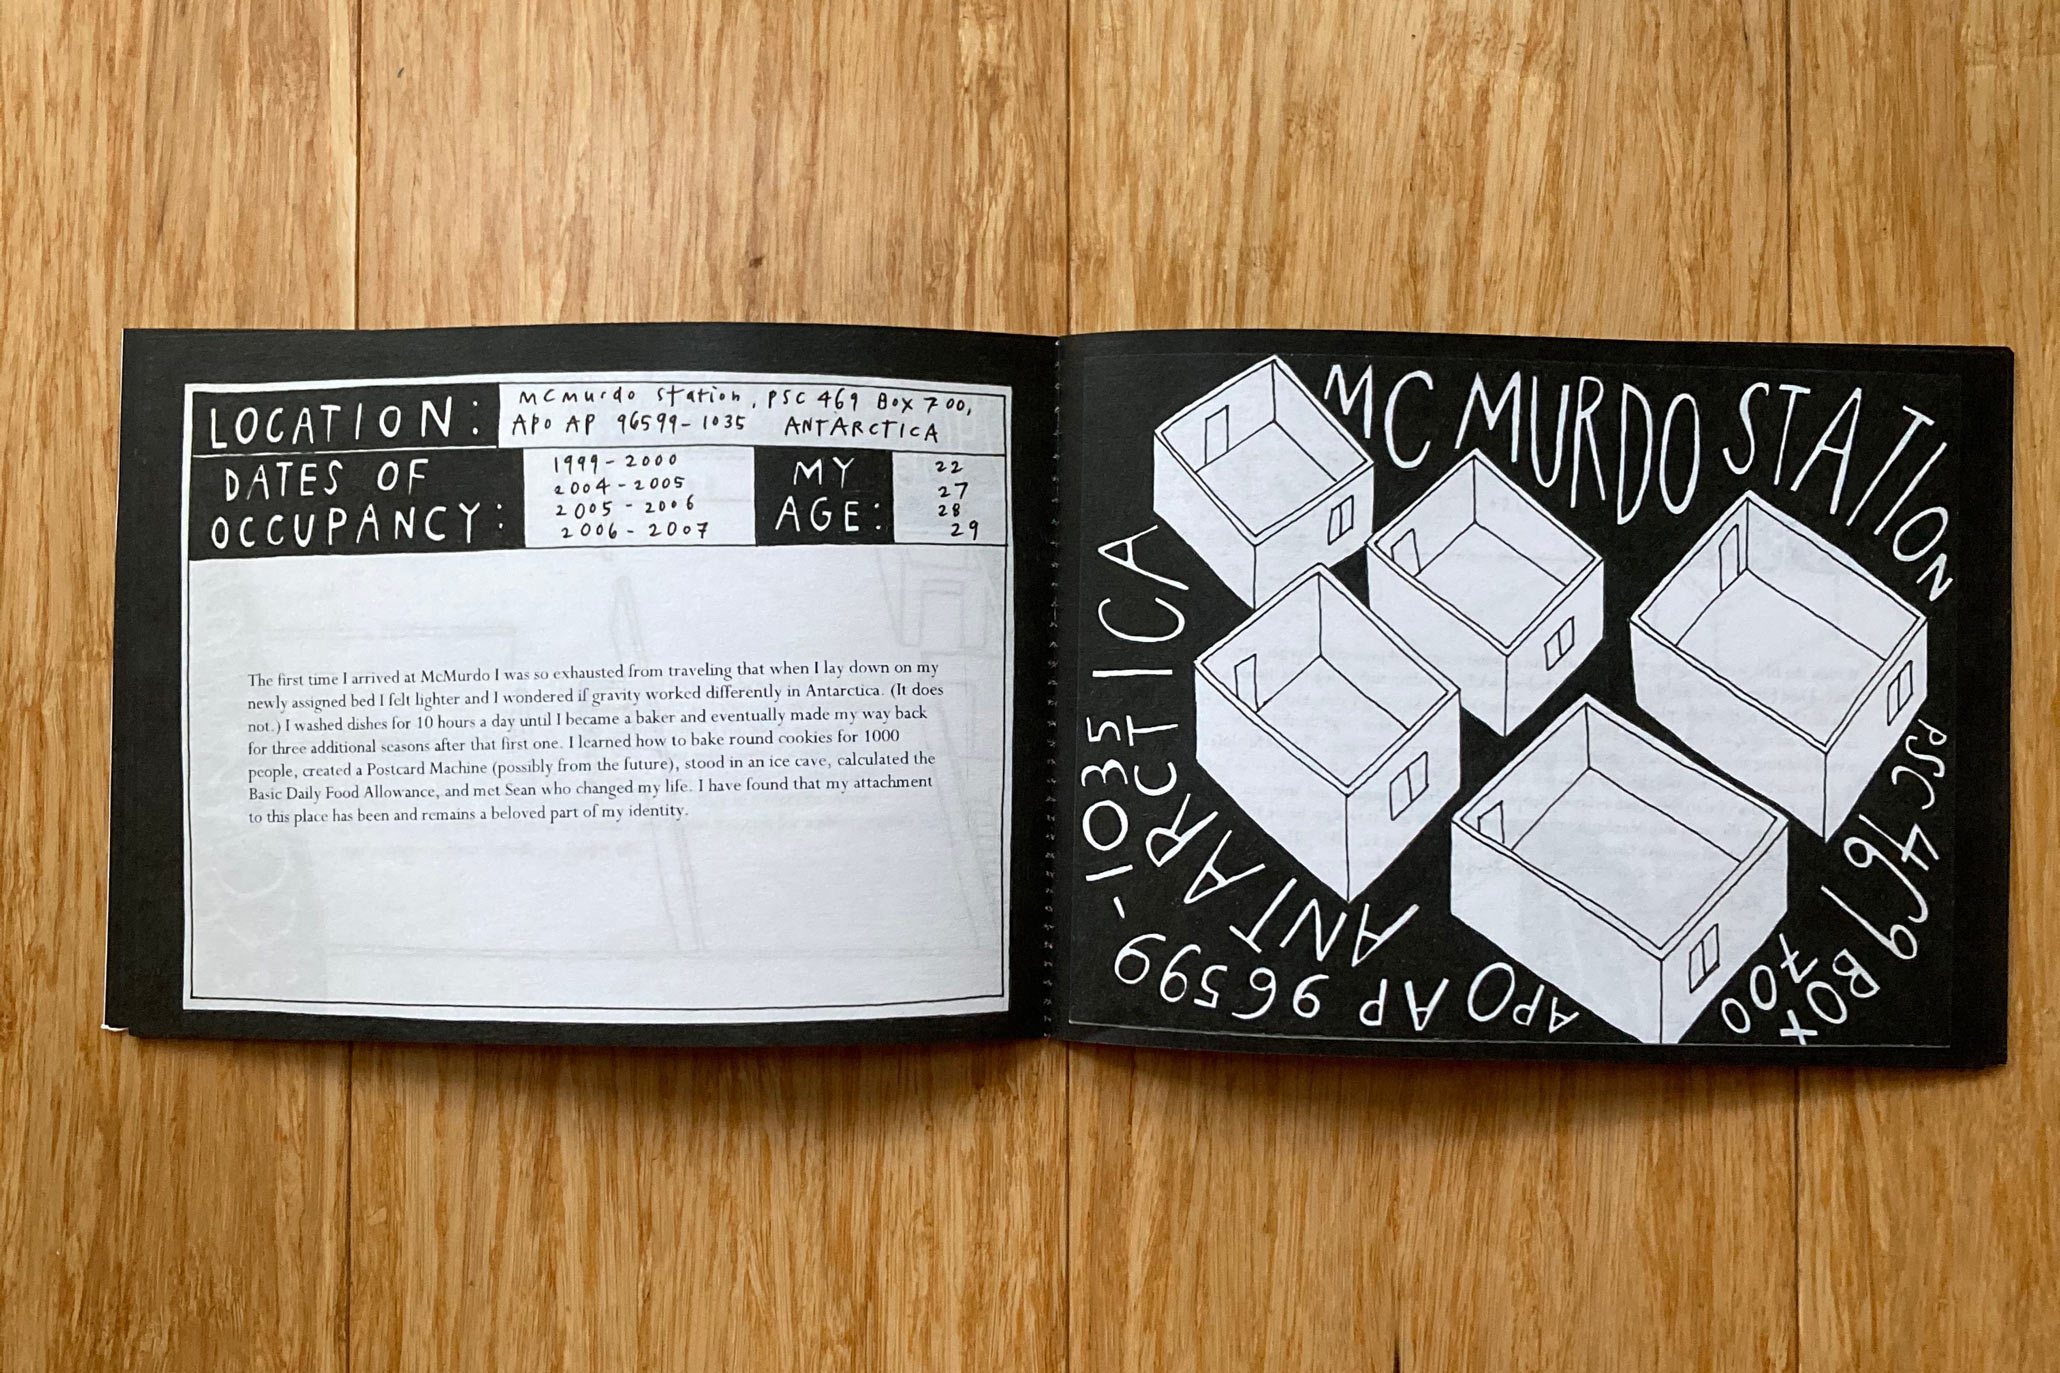 LOCATION:
MCMurdo Station, PSC 469 BOX 700,
APO AP 96599-1035 ANTARCTICA
DATES OF
OCCUPANCY:
1999-2000
2004-2005
2005-2006
2006-2007
MY
AGE:
22
27
28
29
The first time I arrived at McMurdo I was so exhausted from traveling that when I lay down on my
newly assigned bed I felt lighter and I wondered if gravity worked differently in Antarctica. (It does
not.) I washed dishes for 10 hours a day until I became a baker and eventually made my way back
for three additional seasons after that first one. I learned how to bake round cookies for 1000
people, created a Postcard Machine (possibly from the future), stood in an ice cave, calculated the
Basic Daily Food Allowance, and met Sean who changed my life. I have found that my attachment
to this place has been and remains a beloved part of my identity.
MC MURDO STATION
PSC 469 BOX
700
APO AP 96599-1035
ANTARCTICA